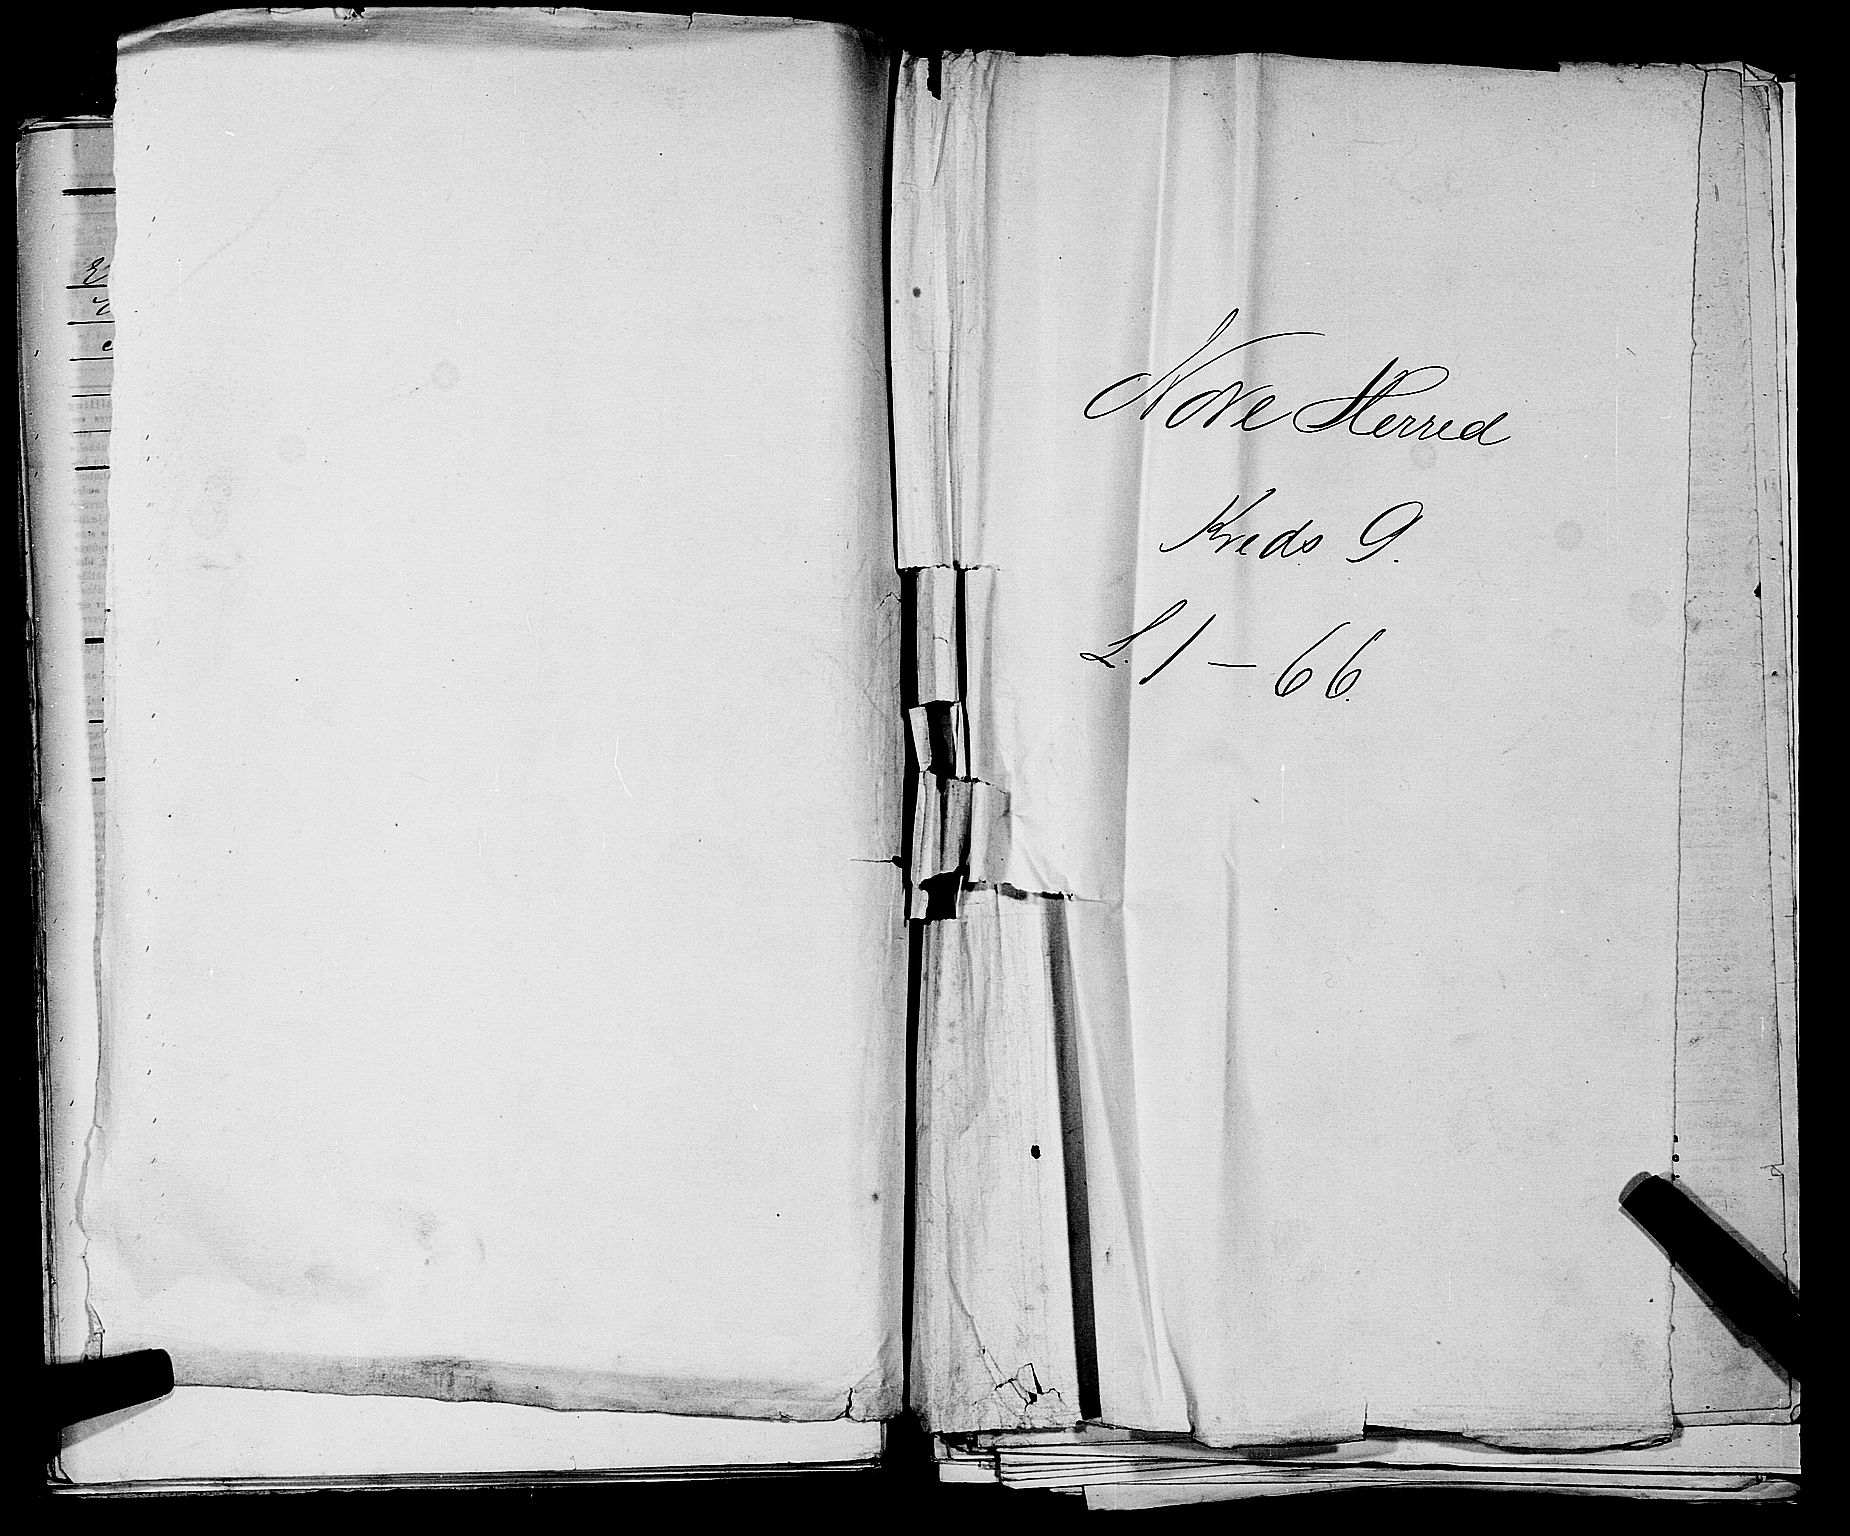 Nore Herred
Kreds 9.
L. 1 – 66.